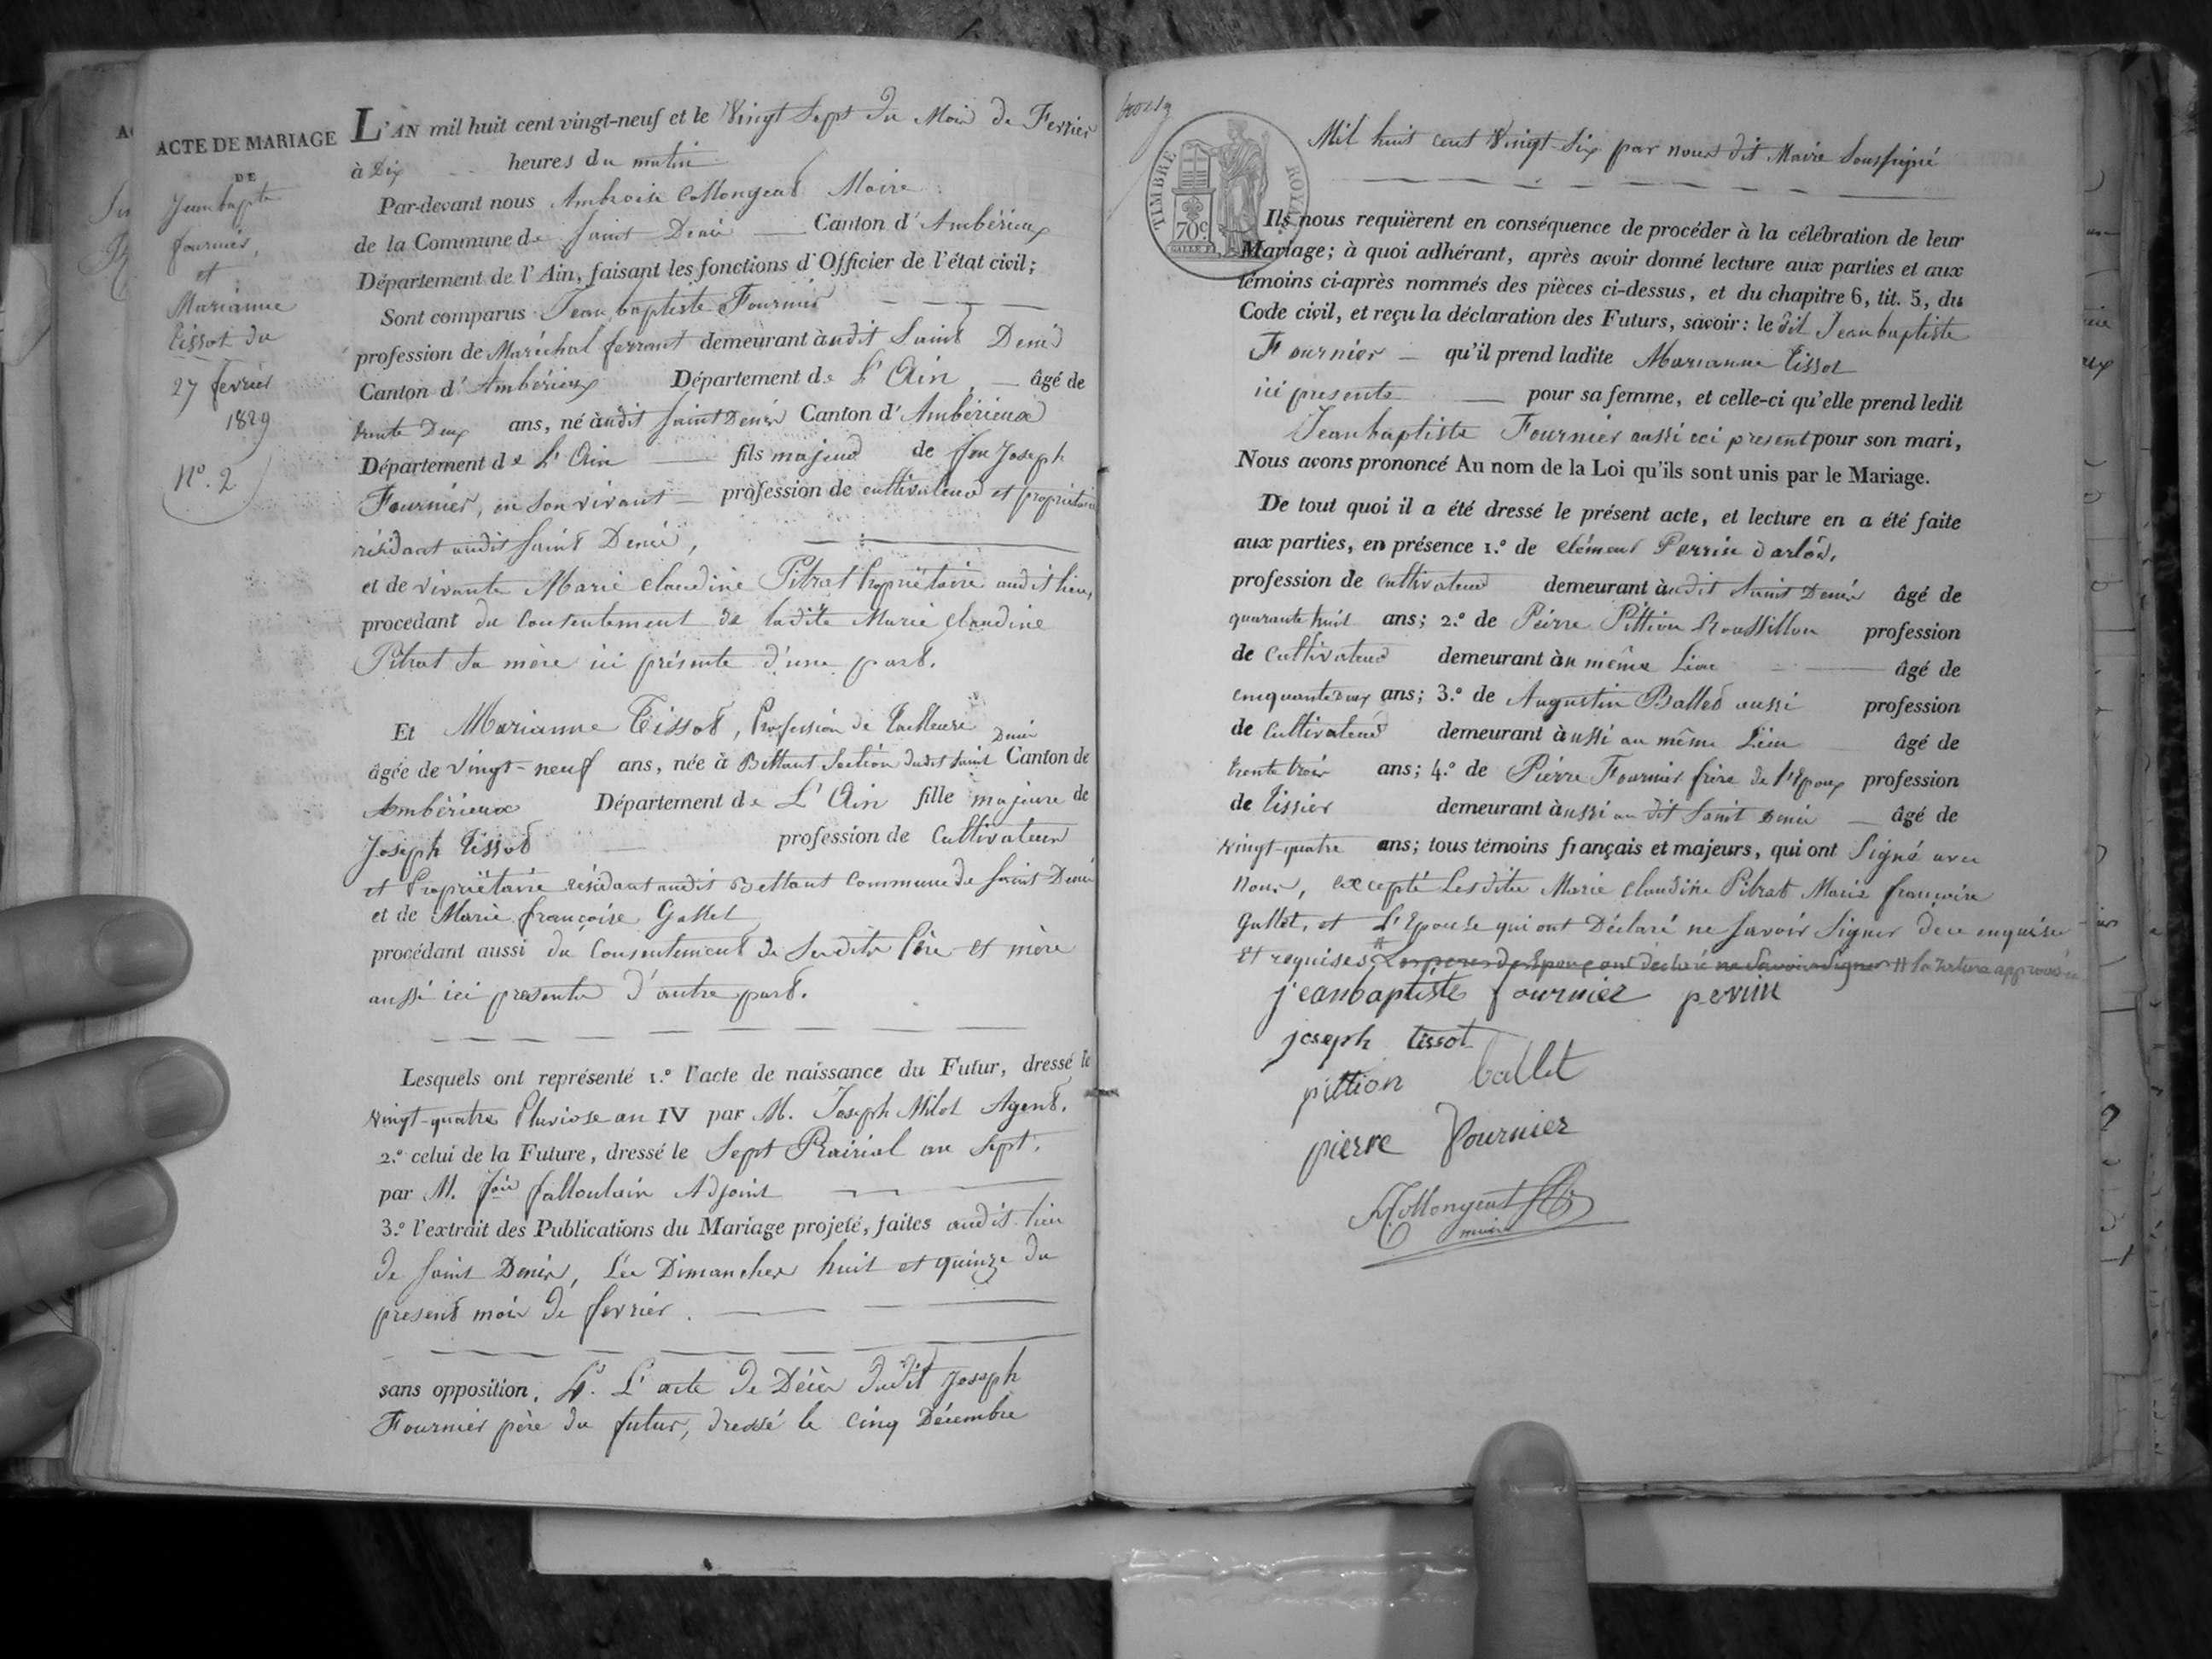 ACTE DE MARIAGE
DE
Jean baptiste
fournier,
et
Marianne
tissot du
27 fevrier
1829
N°. 2
L'AN mil huit cent vingt-neuf et le Vingt Sept du Mois de Fevrier
à Dix heures du matin
Par-devant nous Ambroise Collongeat Maire
de la Commune de Saint Denis Canton d'Ambérieux
Département de l'Ain, faisant les fonctions d'Officier de l'état civil;
Sont comparus Jean baptiste Fournier
profession de Maréchal ferrant demeurant àudit Saint Denis
Canton d'Ambérieux Département de L'Ain âgé de
trente Deux ans, né àudit Saint Denis Canton d'Ambérieux
Département de L'Ain fils majeur de feu Joseph
Fournier, en son vivant profession de cultivateur et propriétaire
résidant audit Saint Denis,
et de vivante Marie claudine Pitrat Propriétaire audit lieu,
procedant du Consentement de ladite Marie claudine
Pitrat sa mère ici présente d'une part.
Et Marianne Tissot, Profession de tailleuse
âgée de vingt-neuf ans, née à Bettant Section dudit Saint Denis Canton de
Ambérieux Département de L'Ain fille majeure de
Joseph tissot profession de Cultivateur
et Propriétaire résidant audit Bettant Commune de Saint Denis
et de Marie françoise Gallet
procédant aussi du Consentement de Sesdits Père et mère
aussi ici presents d'autre part.
Lesquels ont représenté 1.° l'acte de naissance du Futur, dressé le
vingt-quatre Pluviose an IV par M. Joseph Milot Agent.
2.° celui de la Future, dressé le Sept Prairial an Sept.
par M. Adjoint
3.° l'extrait des Publications du Mariage projeté, faites audit lieu
de Saint Denis, Les Dimanches huit et quinze du
present mois de fevrier.
sans opposition. 4°. L'acte de Décès dudit Joseph
Fournier père du futur, dressé le cinq Décembre
TIMBRE ROYAL
70c
Mil huit cent Vingt-Six par nous dit Maire Soussigné
Ils nous requièrent en conséquence de procéder à la célébration de leur
Mariage; à quoi adhérant, après avoir donné lecture aux parties et aux
témoins ci-après nommés des pièces ci-dessus, et du chapitre 6, tit. 5, du
Code civil, et reçu la déclaration des Futurs, savoir: le dit Jean baptiste
Fournier qu'il prend ladite Marianne tissot
ici presente pour sa femme, et celle-ci qu'elle prend ledit
Jean baptiste Fournier aussi ici present pour son mari,
Nous avons prononcé Au nom de la Loi qu'ils sont unis par le Mariage.
De tout quoi il a été dressé le présent acte, et lecture en a été faite
aux parties, en présence 1.° de Clément Perrin
profession de Cultivateur demeurant àudit Saint Denis âgé de
quarante huit ans; 2.° de Pierre Pittion Roussillon profession
de Cultivateur demeurant àu même Lieu âgé de
cinquante deux ans; 3.° de Augustin Ballet aussi profession
de Cultivateur demeurant àussi au même Lieu âgé de
trente trois ans; 4.° de Pierre Fournier frère de l'Epoux profession
de tissier demeurant àussi au dit Saint Denis âgé de
vingt-quatre ans; tous témoins français et majeurs, qui ont Signé avec
nous, excepté Lesdites Marie claudine Pitrat Marie françoise
Gallet, et L'Epouse qui ont Déclaré ne Savoir Signer de ce enquises
et requises. Les peres des Epoux ont déclaré ne Savoir Signer # la rature approuvée
jean baptiste fournier perrin
joseph tissot
pittion ballet
pierre fournier
Collongeat
maire